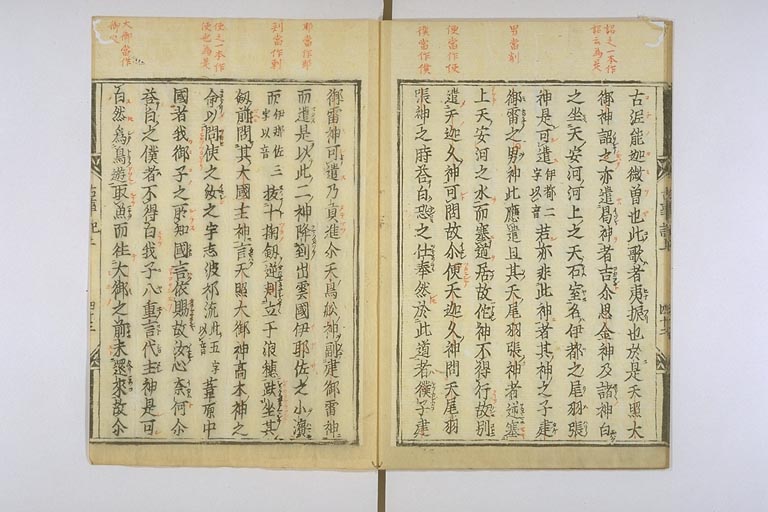 詔之一本作
詔云為是
男當削
便當作使
僕當作僕
古泥能迦微曽也此歌者夷振也於是天照大
御神詔之亦遣曷神者吉尒思金神及諸神白
之坐天安河河上之天石室名伊都之尾羽張
神是可遣伊都二字以音若亦非此神者其神之子建
御雷之男神此應遣且其天尾羽張神者逆塞
上天安河之水而塞道居故佗神不得行故別
遣天迦久神可問故尒使天迦久神問天尾羽
張神之時荅白恐之仕奉然於此道者僕子建
耶當作那
到當作剌
使之一本作
使也為是
大御當作
御大
御雷神可遣乃貢進尒天鳥舩神副建御雷神
而遣是以此二神降到出雲國伊耶佐之小濵
而伊那佐三字以音拔十掬劔逆刺立于浪穂趺坐其
劔前問其大國主神言天照大御神高木神之
命以問使之汝之宇志波祁流此五字以音葦原中
國者我御子之所知國言依賜故汝心奈何尒
荅白之僕者不得白我子八重言代主神是可
白然為鳥遊取魚而往大御之前未還來故尒
古事記上
四十三